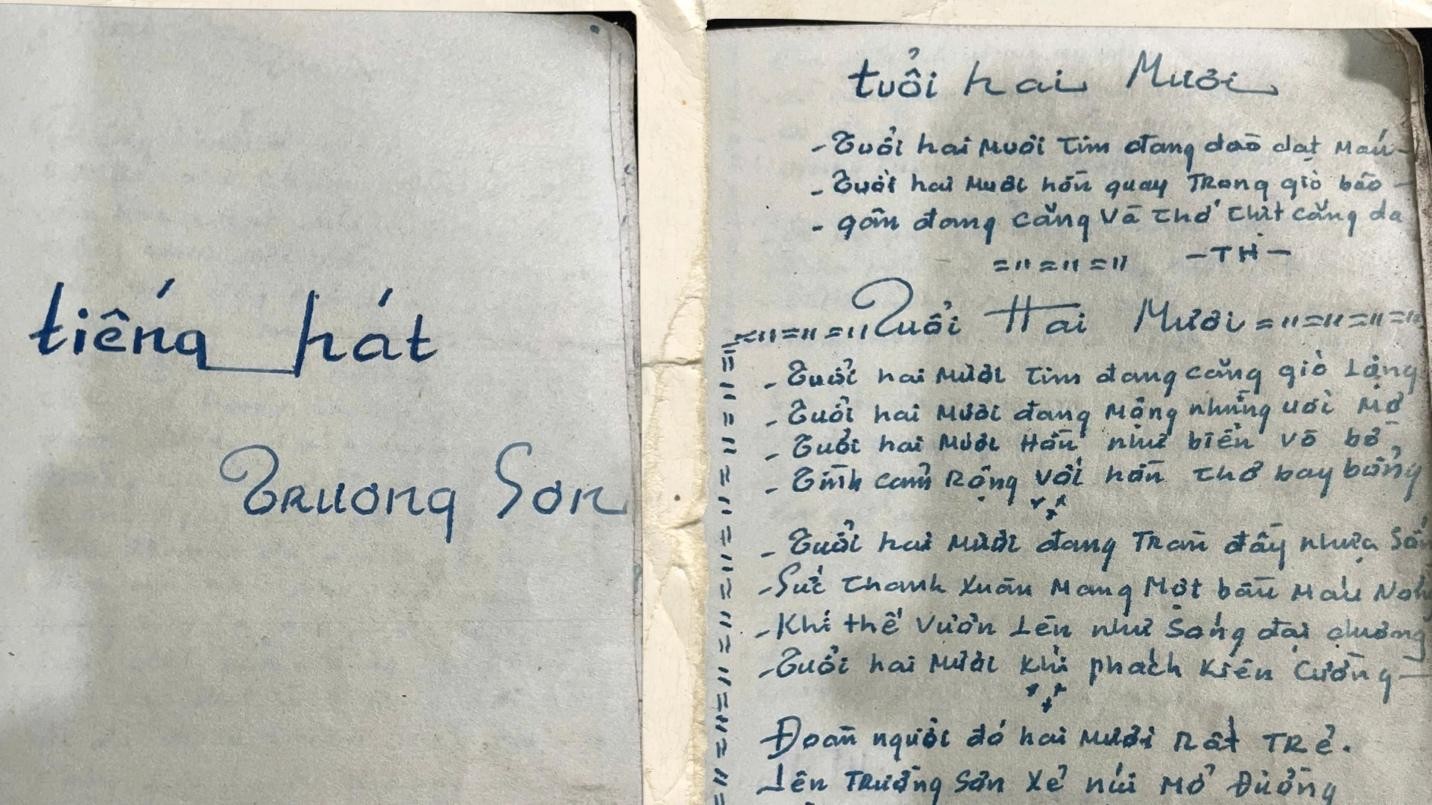 tiếng hát
Trương Sơn
tuổi hai Mươi
- Tuổi hai Mươi Tim đang dào dạt Máu -
- Tuổi hai Mươi hồn quay Trong gió bão -
- gân đang căng và thớ thịt căng da
= " = " = " -TH-
= " = " = " Tuổi Hai Mươi = " = " = " = "
- Tuổi hai Mươi Tim đang căng gió Lộng
- Tuổi hai Mươi đang Mộng những ươi Mơ
- Tuổi hai Mươi Hồn như biển vỗ bờ,
- Tình cảm Rộng với hồn thơ bay bổng
- Tuổi hai Mươi đang Tràn đầy nhựa
- Sức Thanh Xuân Mang Một bầu Máu
- Khí thế Vươn Lên như Sóng đại dương
- Tuổi hai Mươi Khí phách Kiên Cường -
Đoàn người đó hai Mươi Rất TRẻ.
Lên TRường Sơn Xẻ núi Mở Đường